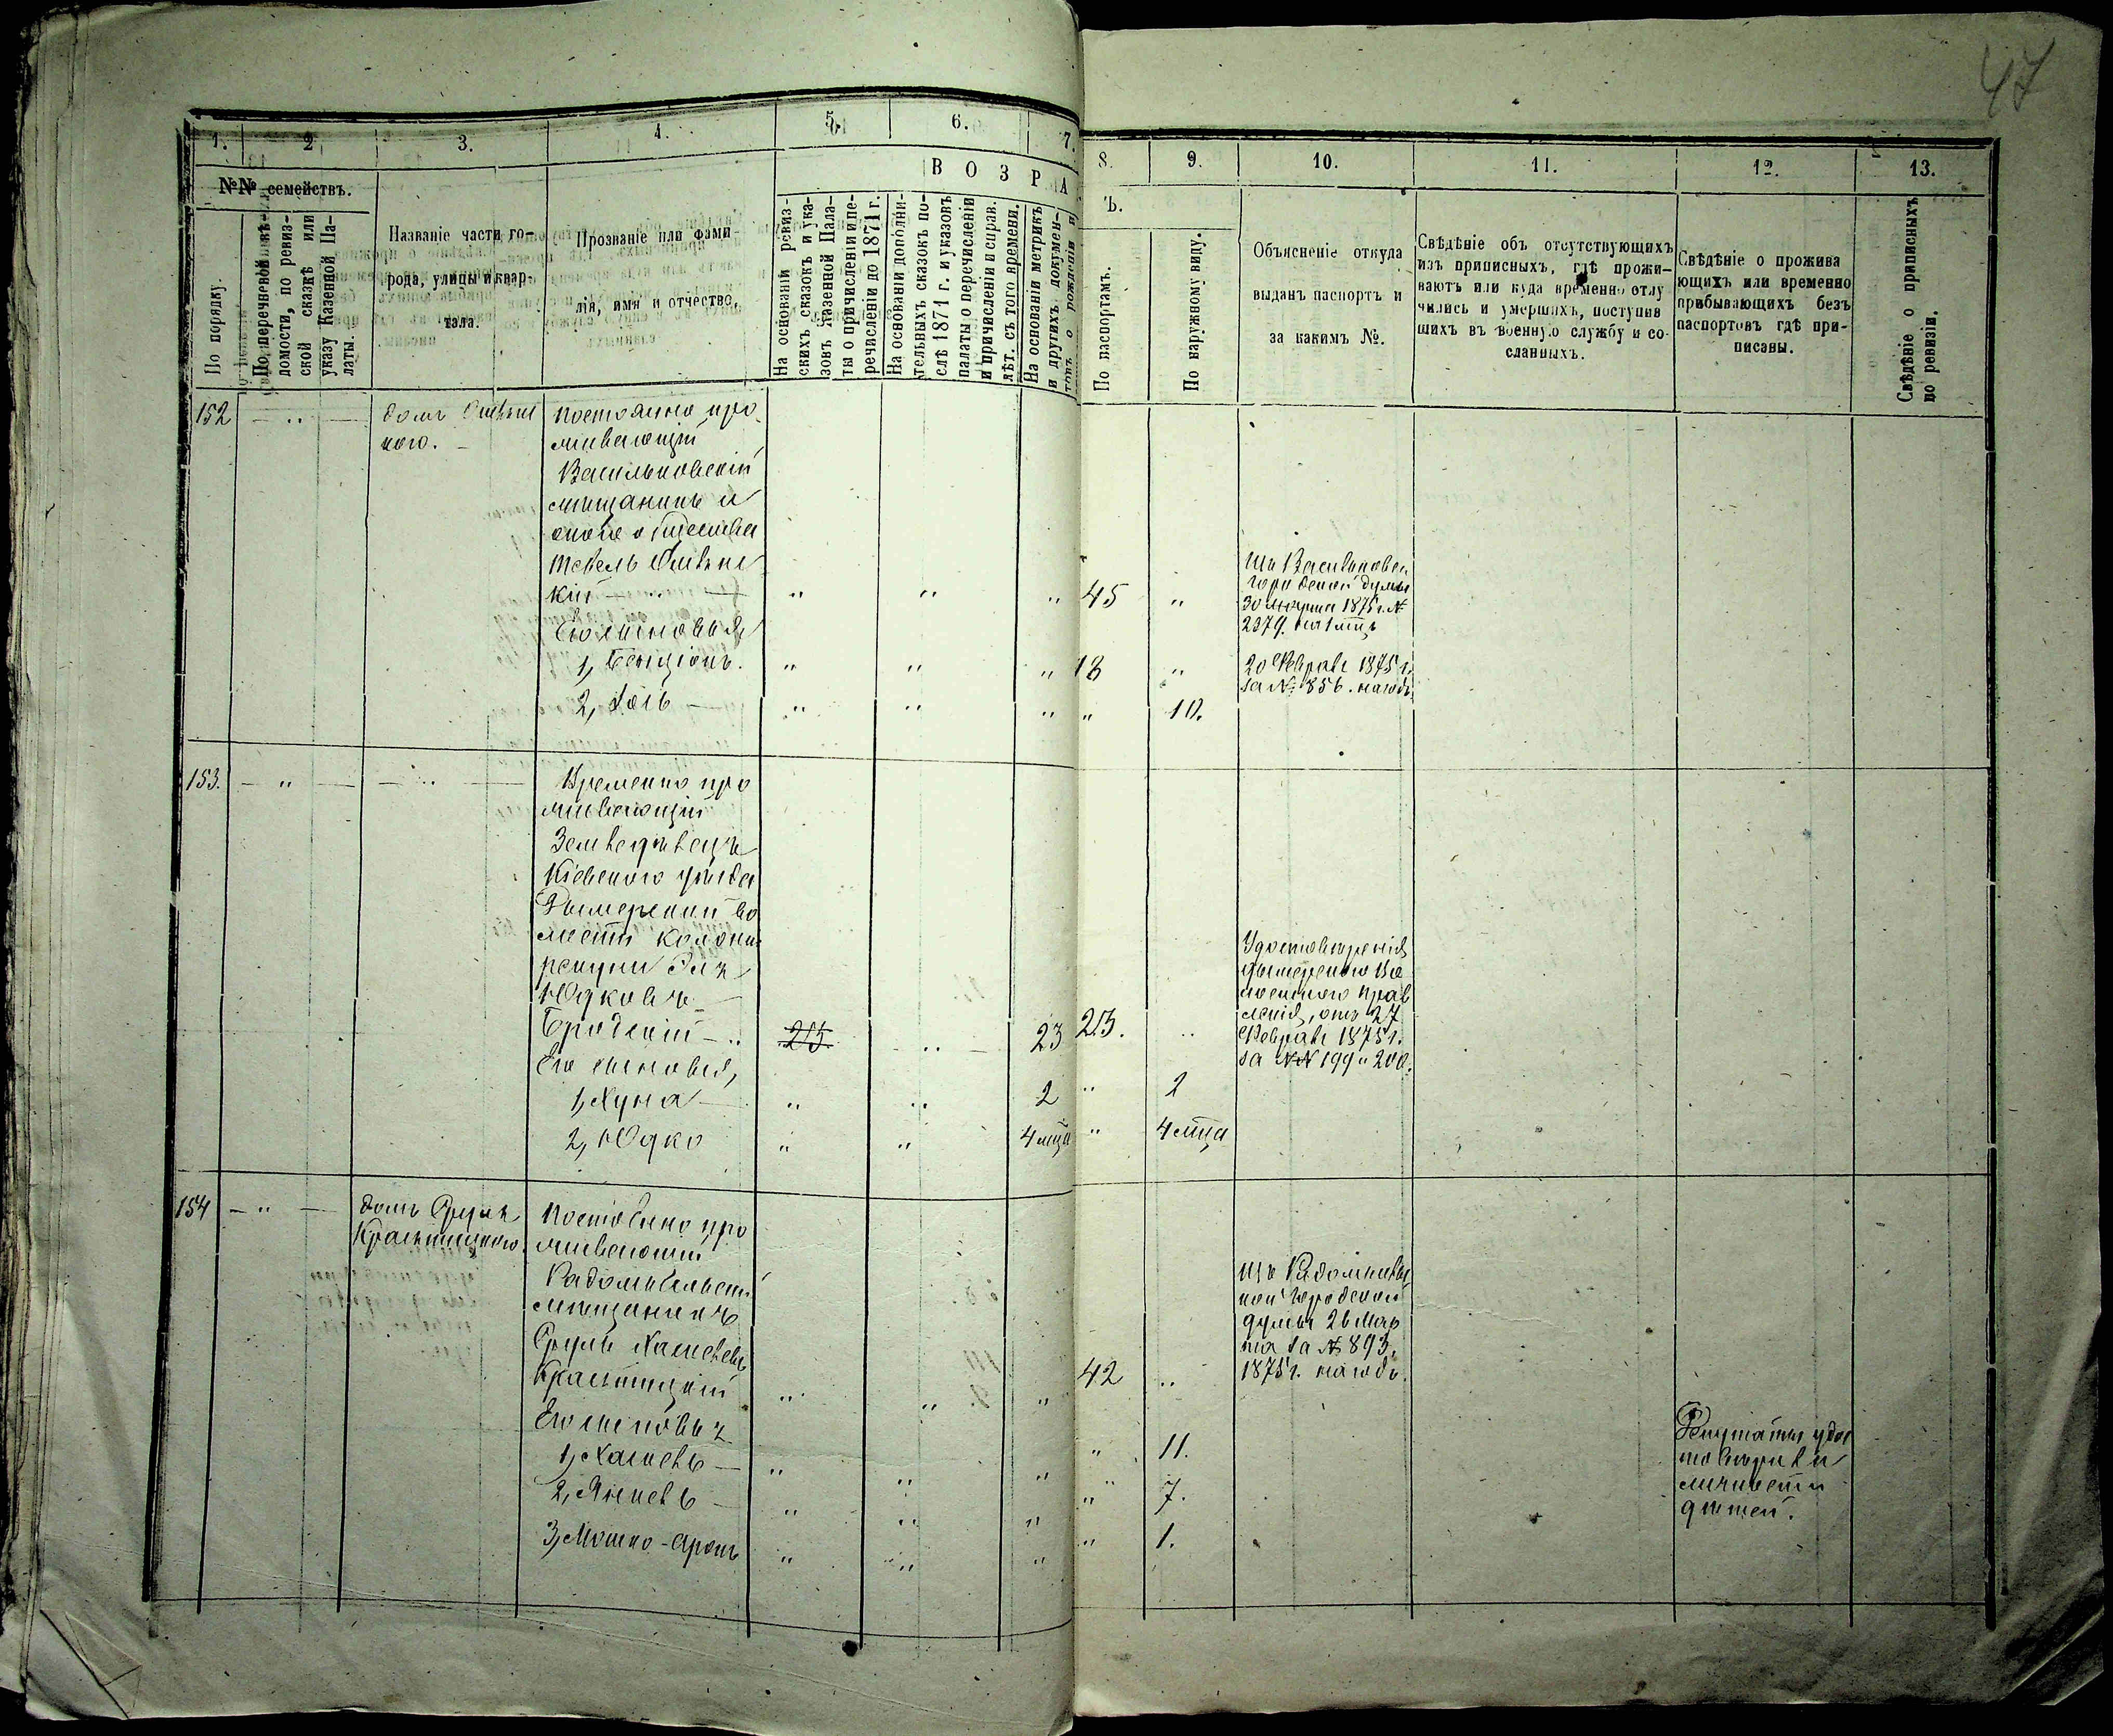 47
1.
2
3.
4.
5.
6.
7.
8.
9.
10.
11.
12.
13.
№№ семействъ.
В О З Р А
Ъ.
По порядку.
По перечневой вѣ-
домости, по ревиз-
ской сказкѣ или
указу Казенной Па-
латы.
Названіе части го-
рода, улицы и квар-
тала.
Прозваніе или фами-
лія, имя и отчество.
На основаніи ревиз-
скихъ сказокъ и ука-
зовъ Казенной Пала-
ты о причисленіи и пе-
речисленіи до 1871 г.
На основаніи дополни-
тельныхъ сказокъ по-
слѣ 1871 г. и указовъ
палаты о перечисленіи
и причисленіи и справ.
лѣт. съ того времени.
На основаніи метрикъ
и другихъ докумен-
товъ о рожденіи и
По паспортамъ.
По наружному виду.
Объясненіе откуда
выданъ паспортъ и
за какимъ №.
Свѣдѣніе объ отсутствующихъ
изъ приписныхъ, гдѣ прожи-
ваютъ или куда временно отлу
чились и умершихъ, поступив
шихъ въ военную службу и со-
сланныхъ.
Свѣдѣніе о прожива
ющихъ или временно
прибывающихъ безъ
паспортовъ гдѣ при-
писаны.
Свѣдѣніе о приписныхъ
по ревизіи.
152 — " — домъ
кого. —
Постоянно про
живающій
Васильковскій
мѣщанинъ
Тевель
кій — " " " 45 "
Изъ Васильков
городской думы
30 1875 г. №
2379.
Его сыновья
1, Бенціонъ. " " " 18 "
20 Февраля 1875 г.
за № 856. на годъ
2, — " " " " 10.
153. — " — — " —
Временно про
живающій
Земледѣлецъ
Кіевскаго уѣзда
Дымерской во
лости колоніи
Юдковъ
Бродскій — " 25 " — 23 23. "
Удостовѣренія
Дымерскаго Во
лостнаго Прав
ленія, отъ 27
Февраля 1875 г.
за №№ 199 и 200.
Его сыновья,
1, Хуна — " " 2 " 2
2, Юдко " " 4 мца " 4 мца
154 — " — домъ Сруля
Постоянно про
живающій
Радомысльскій
мѣщанинъ
Сруль
" " " 42 "
Изъ Радомысльс
кой городской
думы 26 Мар
та за № 893,
1875 г. на годъ.
Его сыновья
1, — " " " " 11.
2, — " " " " 7.
3, Мошко-Аронъ " " " " 1.
Депутаты удос
товѣрили
личности
дѣтей.